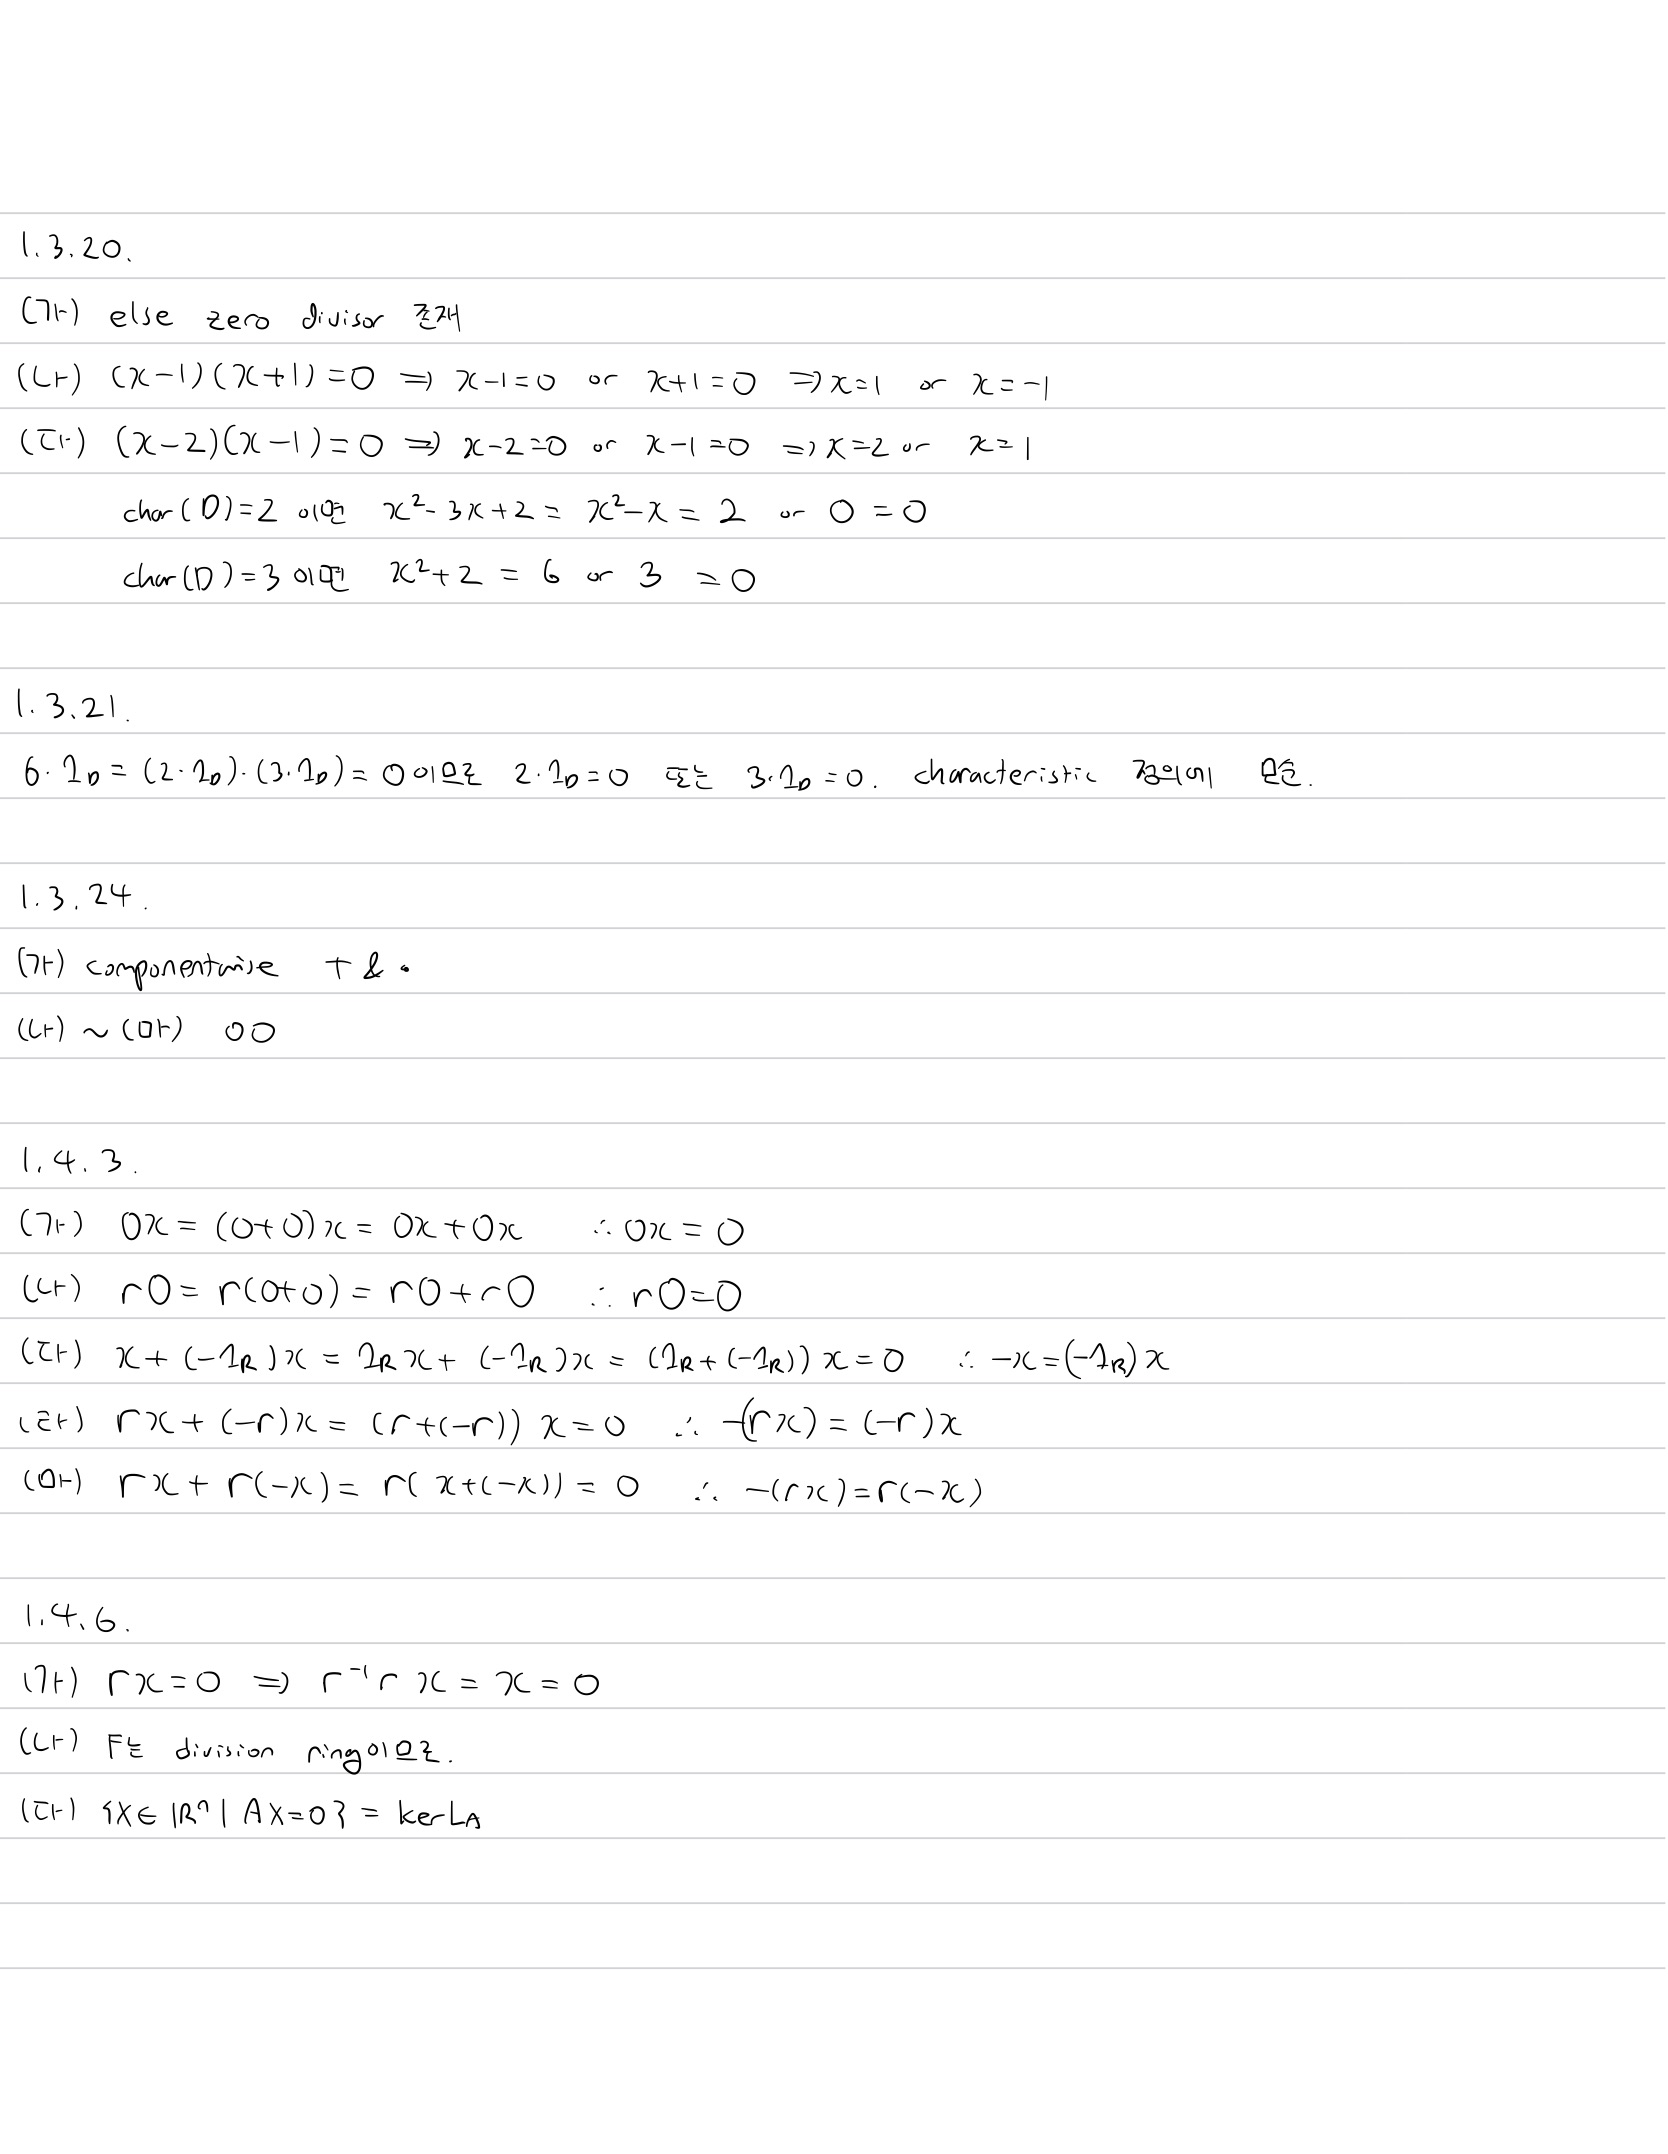 1.3.20.
(가) else zero divisor 존재
(나) (x-1)(x+1)=0 ⇒ x-1=0 or x+1=0 ⇒ x=1 or x=-1
(다) (x-2)(x-1)=0 ⇒ x-2=0 or x-1=0 ⇒ x=2 or x=1
char(D)=2 이면 x²-3x+2 = x²-x = 2 or 0 = 0
char(D)=3 이면 x²+2 = 6 or 3 = 0
1.3.21.
6·1_D = (2·1_D)·(3·1_D) = 0 이므로 2·1_D=0 또는 3·1_D=0. characteristic 정의에 모순.
1.3.24.
(가) componentwise + & •
(나) ~ (마) 00
1.4.3.
(가) 0x = (0+0)x = 0x+0x ∴ 0x = 0
(나) r0 = r(0+0) = r0+r0 ∴ r0=0
(다) x+(-1_R)x = 1_R x+(-1_R)x = (1_R+(-1_R))x = 0 ∴ -x=(-1_R)x
(라) rx+(-r)x = (r+(-r))x = 0 ∴ -(rx) = (-r)x
(마) rx + r(-x) = r(x+(-x)) = 0 ∴ -(rx)=r(-x)
1.4.6.
(가) rx=0 ⇒ r⁻¹rx = x = 0
(나) F는 division ring이므로.
(다) {X∈ℝⁿ | AX=0} = ker L_A